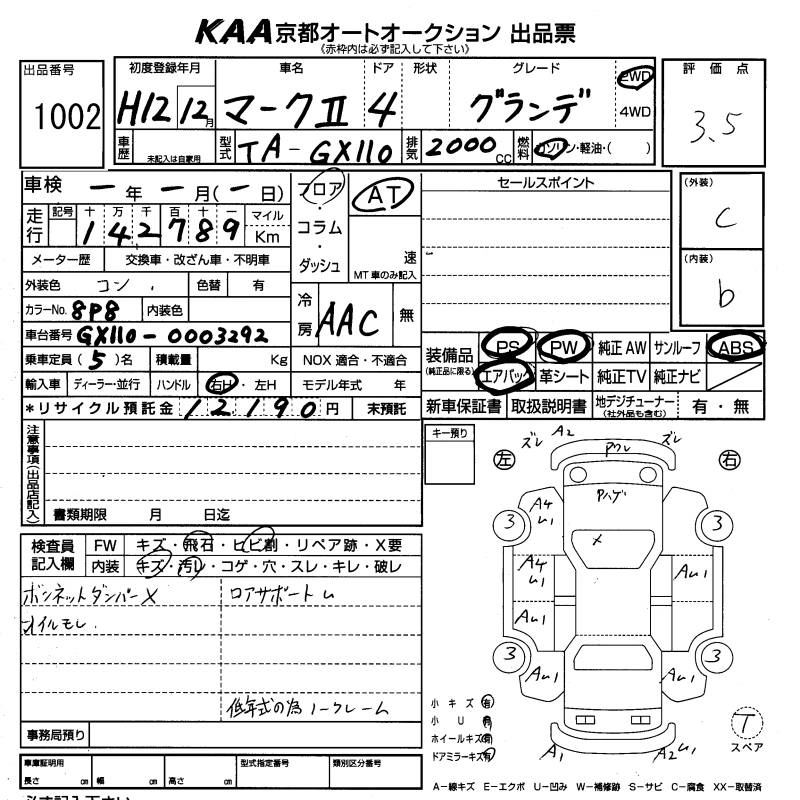 KAA京都オートオークション 出品票
(赤枠内は必ず記入して下さい)
出品番号 1002
初度登録年月 H12 12月
車名 マークⅡ
ドア 4
形状
グレード グランデ
2WD
4WD
評価点 3.5
車歴 未記入は自家用
型式 TA-GX110
排気 2000 CC
燃料 ガソリン・軽油・( )
車検 ー年ー月(ー日)
走行 記号 十 万 千 百 十 一 マイル
142789 Km
メーター歴 交換車・改ざん車・不明車
外装色 コン. 色替 有
カラーNo. 8P8 内装色
車台番号 GX110-0003292
乗車定員(5)名 積載量 Kg
NOX 適合・不適合
輸入車 ディーラー・並行 ハンドル 右H・左H
モデル年式 年
*リサイクル預託金 12190円 未預託
フロア・コラム・ダッシュ
AT
速
MT車のみ記入
冷房 AAC 無
セールスポイント
(外装) C
(内装) b
装備品 (純正品に限る)
PS PW 純正AW サンルーフ ABS
エアバック 革シート 純正TV 純正ナビ
新車保証書 取扱説明書 地デジチューナー (社外品も含む) 有・無
注意事項(出品店記入)
書類期限 月 日迄
キー預り
検査員記入欄
FW キズ・飛石・ヒビ割・リペア跡・X要
内装 キズ・汚レ・コゲ・穴・スレ・キレ・破レ
ボンネットダンパーX
オイルモレ.
ロアサポートU
低年式の為ノークレーム
事務局預り
車庫証明用
長さ cm 幅 cm 高さ cm
型式指定番号
類別区分番号
ズレ A2 ズレ
左 右
アワレ
Pハゲ
3 3
A4
U1
×
A4
U1
AU1
AU1
3 3
AU1 AU1
A1 A2 U1
小キズ 有
小U 有
ホイールキズ 有
ドアミラーキズ 有
T
スペア
A-線キズ E-エクボ U-凹み W-補修跡 S-サビ C-腐食 XX-取替済
必ず記入下さい